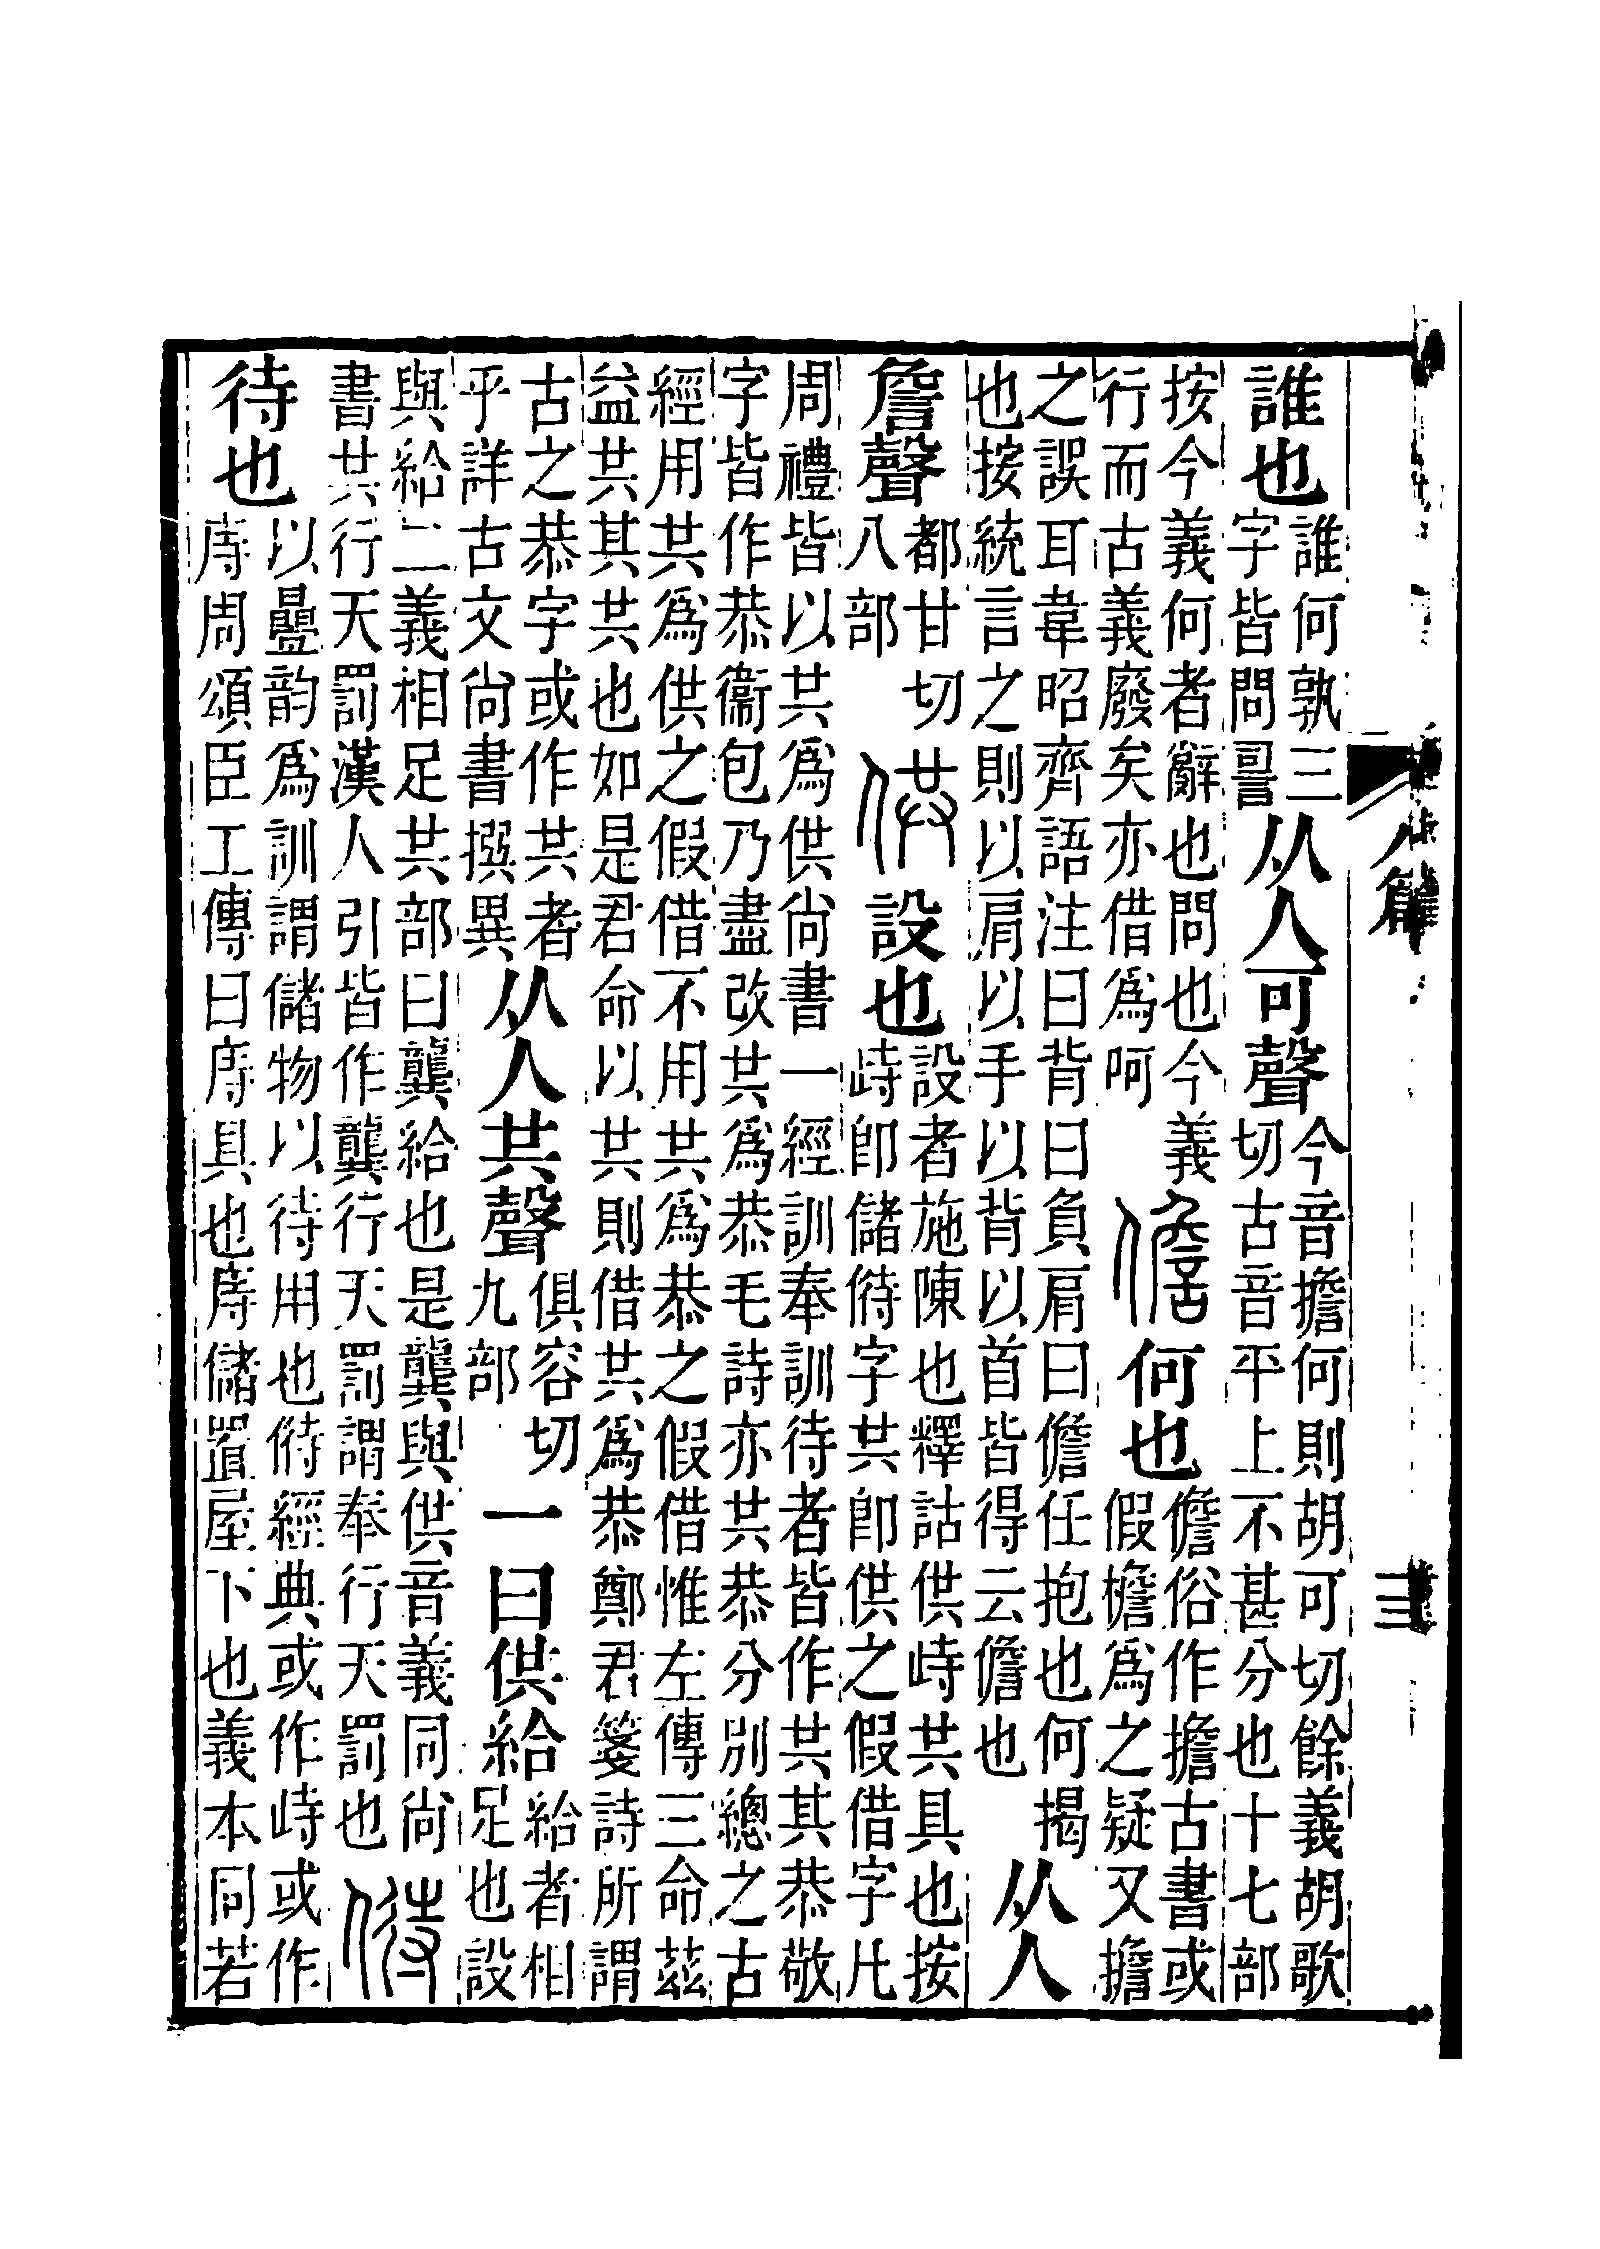 八篇
三
誰也
誰何孰三
字皆問䛐
从人可聲
今音擔何則胡可切餘義胡歌
切古音平上不甚分也十七部
按今義何者辭也問也今義
行而古義廢矣亦借爲呵
儋何也
儋俗作擔古書或
假檐爲之疑又擔
之誤耳韋昭齊語注曰背曰負肩曰儋任抱也何揭
也按統言之則以肩以手以背以首皆得云儋也
从人
詹聲
都甘切
八部
供設也
設者施陳也釋詁供峙共具也按
峙卽儲偫字共卽供之假借字凡
周禮皆以共爲供尙書一經訓奉訓待者皆作共其恭敬
字皆作恭衞包乃盡改共爲恭毛詩亦共恭分別總之古
經用共爲供之假借不用共爲恭之假借惟左傳三命茲
益共其共也如是君命以共則借共爲恭鄭君箋詩所謂
古之恭字或作共者
乎詳古文尙書撰異
从人共聲
俱容切
九部
一曰供給
給者相
足也設
與給二義相足共部曰龔給也是龔與供音義同尙
書共行天罰漢人引皆作龔行天罰謂奉行天罰也
偫
待也
以疊韵爲訓謂儲物以待用也偫經典或作峙或作
庤周頌臣工傳曰庤具也庤儲置屋下也義本同若